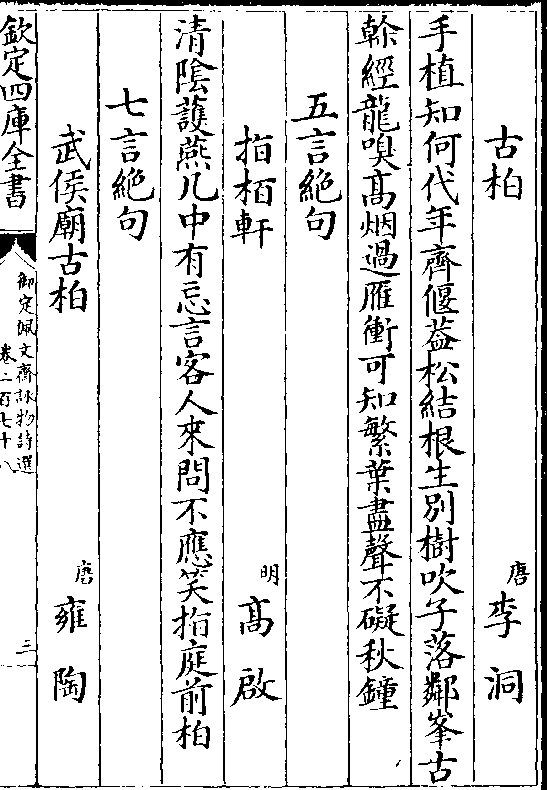 古柏 唐 李洞
手植知何代年齊偃葢松結根生別樹吹子落鄰峯古
榦經龍嗅髙烟過雁衝可知繁葉盡聲不礙秋鐘
五言絶句
指栢軒 明 髙啟
清陰䕶燕几中有忘言客人來問不應笑指庭前柏
七言絶句
武侯廟古柏 唐 雍陶
欽定四庫全書 御定佩文齋詠物詩選 卷二百七十八 三